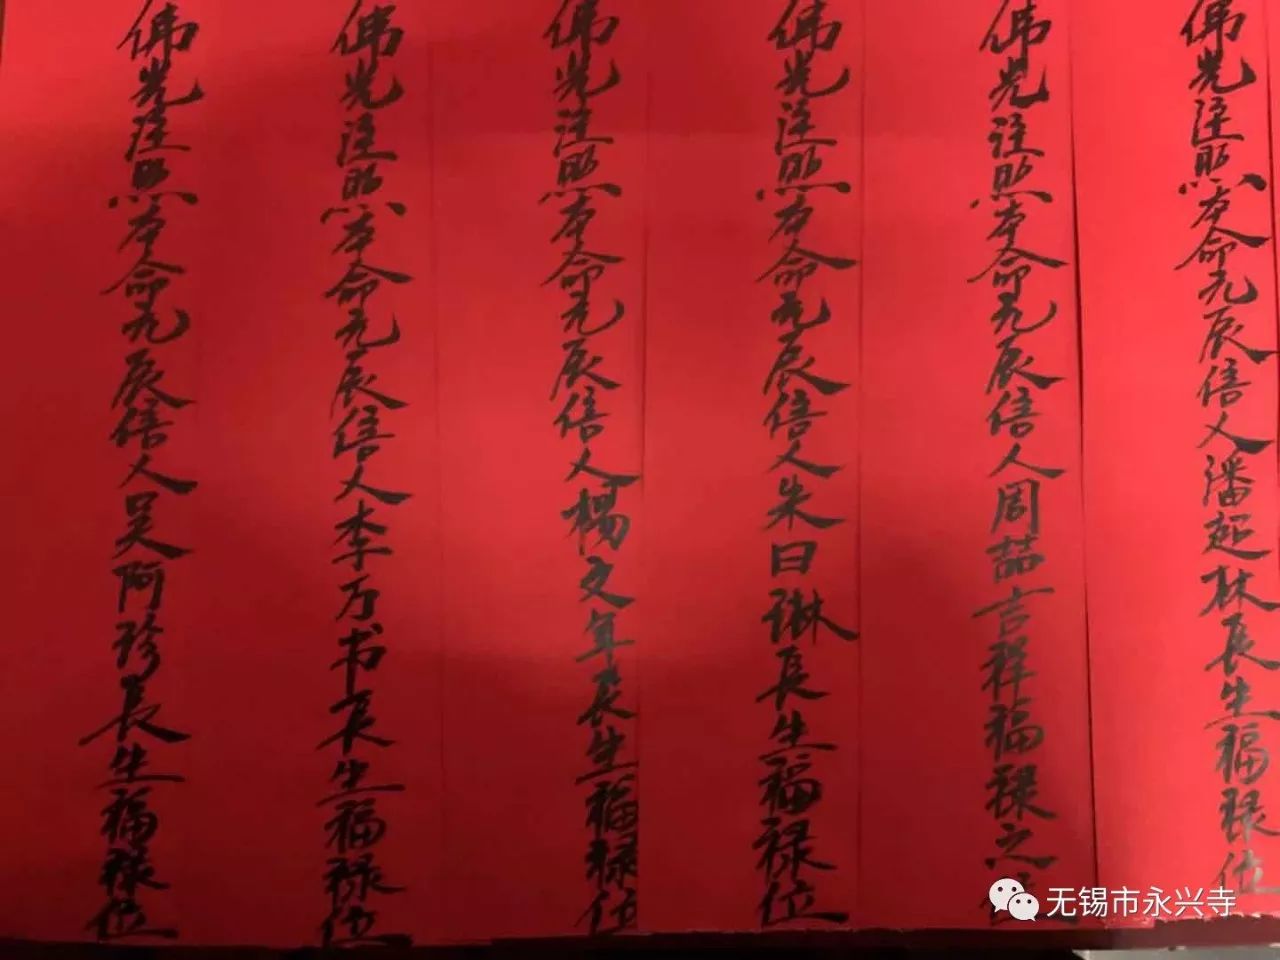 佛光注照本命元辰信人潘起林長生福禄位
佛光注照本命元辰信人周喆言祥福禄之位
佛光注照本命元辰信人朱曰琳長生福禄位
佛光注照本命元辰信人楊文年長生福禄位
佛光注照本命元辰信人李万书长生福禄位
佛光注照本命元辰信人吴阿珍長生福禄位
无锡市永兴寺